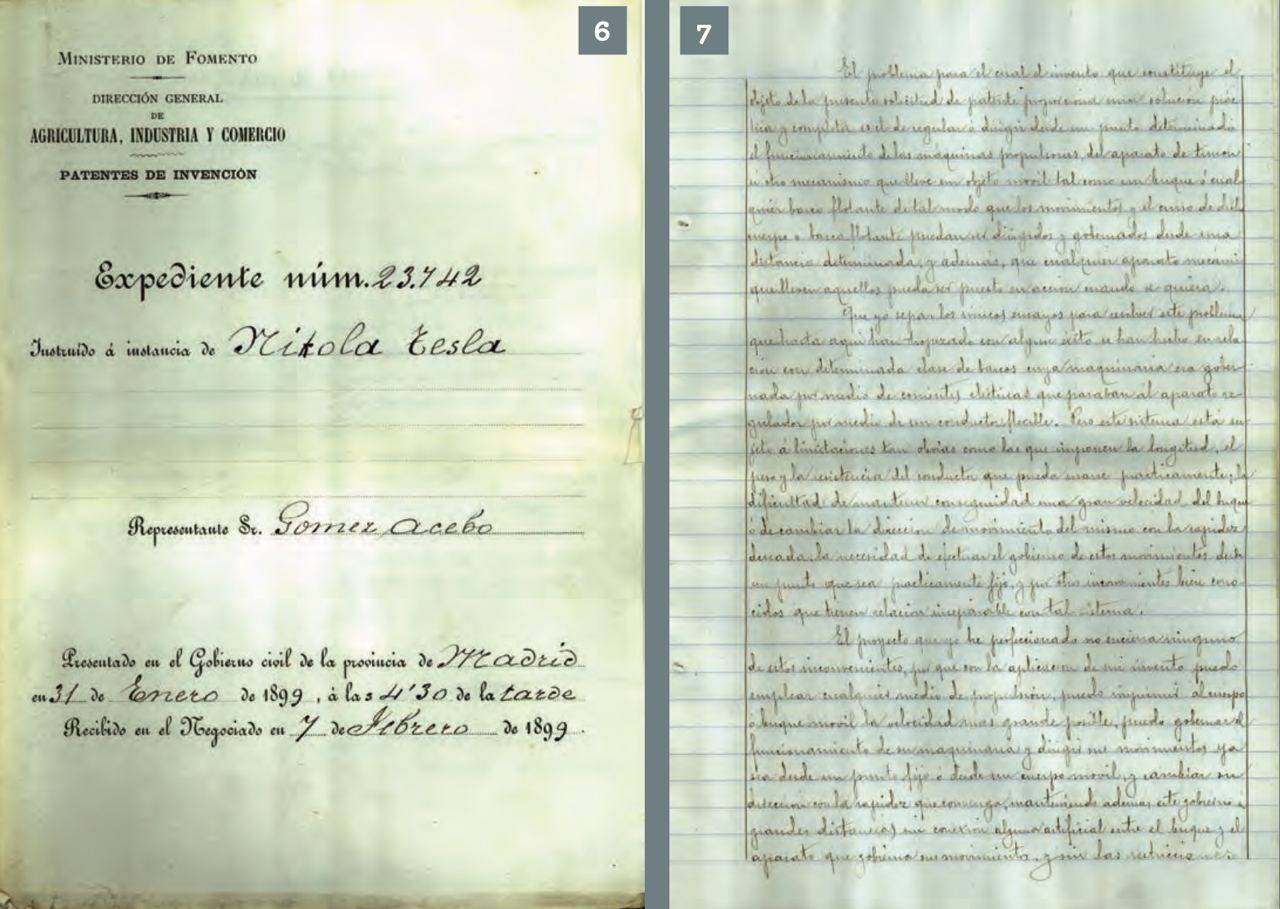 6
MINISTERIO DE FOMENTO
DIRECCIÓN GENERAL
DE
AGRICULTURA, INDUSTRIA Y COMERCIO
PATENTES DE INVENCIÓN
Expediente núm. 23.742
Instruído á instancia de Nikola Tesla
Representante Sr. Gomez Acebo
Presentado en el Gobierno civil de la provincia de Madrid
en 31 de Enero de 1899, á las 4'30 de la tarde
Recibido en el Negociado en 7 de Febrero de 1899.
7
El problema para el cual el invento que constituye el
objeto de la presente solicitud de patente proporciona una solucion prác
tica y completa es el de regular ó dirigir desde un punto determinado
el funcionamiento de las maquinas propulsoras, del aparato de timon
u otro mecanismo que lleve un objeto movil tal como un buque ó cual
quier barco flotante de tal modo que los movimientos y el curso de dicho
cuerpo o barco flotante puedan ser dirigidos y gobernados desde una
distancia determinada, y ademas, que cualquier aparato mecáni
que lleven aquellos pueda ser puesto en acción cuando se quiera.
Que yo sepa, los unicos ensayos para resolver este problema
que hasta aqui han tropezado con algun éxito se han hecho en rela
ción con determinada clase de barcos cuya maquinaria era gober
nada por medio de corrientes electricas que pasaban al aparato re
gulador por medio de un conductor flexible. Pero este sistema está su
jeto á limitaciones tan obvias como las que imponen la longitud, el
peso y la resistencia del conductor que pueda usarse practicamente; la
dificultad de mantener con seguridad una gran velocidad del buque
ó de cambiar la direccion de movimiento del mismo con la rapidez
deseada, la necesidad de efectuar el gobierno de estos movimientos desde
un punto que sea practicamente fijo, y por otros inconvenientes bien cono
cidos que tienen relacion inseparable con tal sistema.
El proyecto que yo he perfeccionado no encierra ninguno
de estos inconvenientes, porque con la aplicacion de mi invento puedo
emplear cualquier medio de propulsión, puedo imprimir al cuerpo
o buque movil la velocidad mas grande posible, puedo gobernar el
funcionamiento de su maquinaria y dirigir sus movimientos ya
sea desde un punto fijo ó desde un cuerpo movil, y cambiar su
direccion con la rapidez que convenga, manteniendo ademas este gobierno a
grandes distancias sin conexion alguna artificial entre el buque y el
aparato que gobierna sus movimientos, y sin las